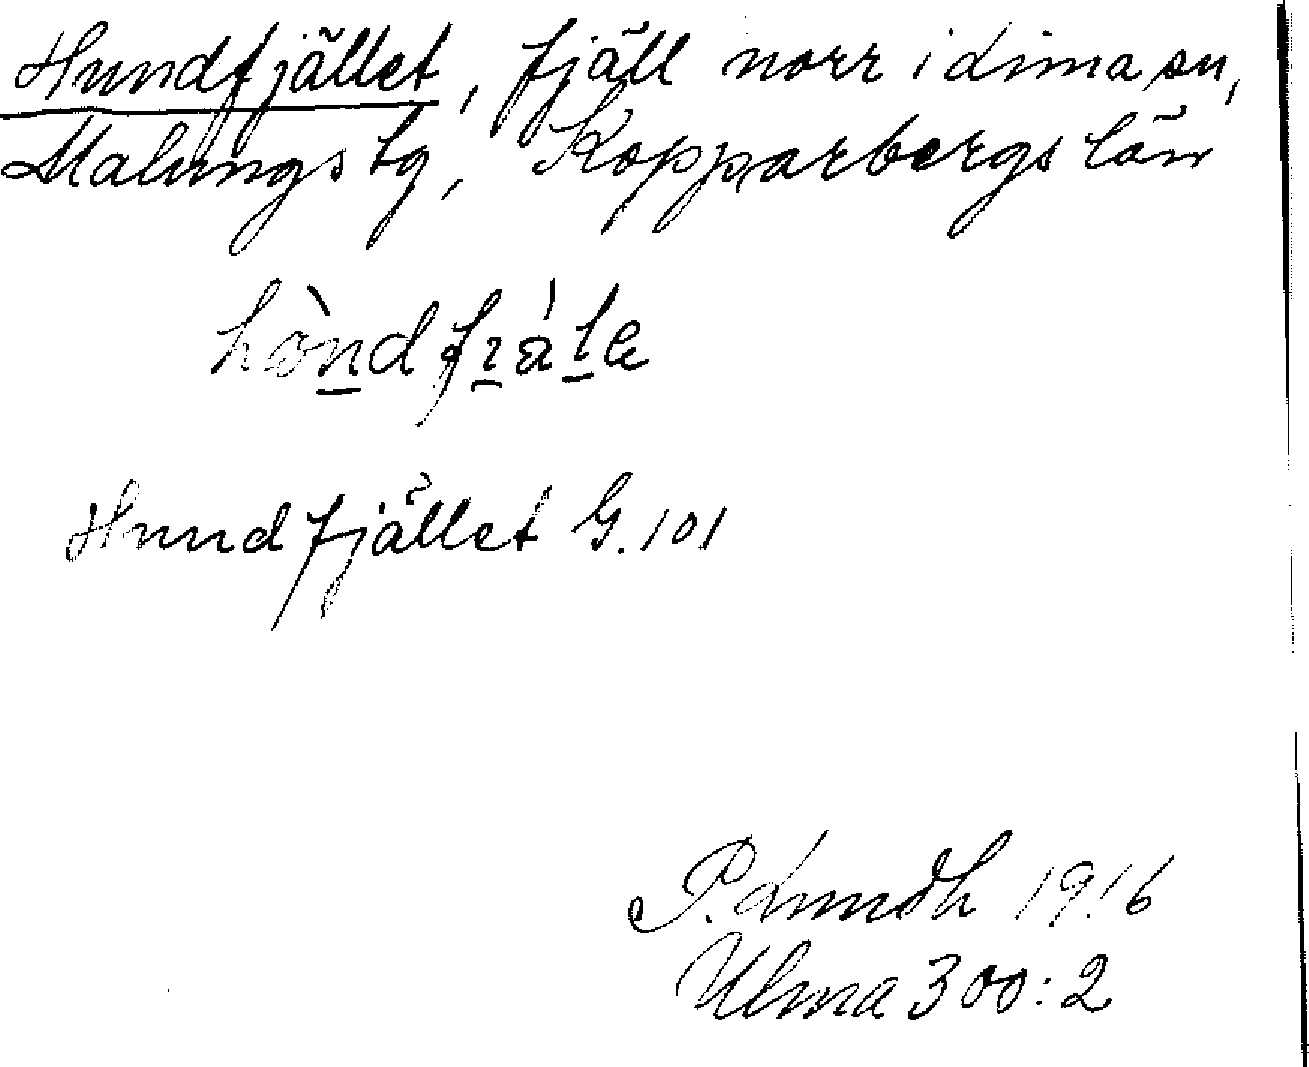 Hundfjället, fjäll norr i Lima sn,
Malungs tg, Kopparbergs län
hòndfıáte
Hundfjället G. 101
P. Lindh 1916
Ulma 300:2